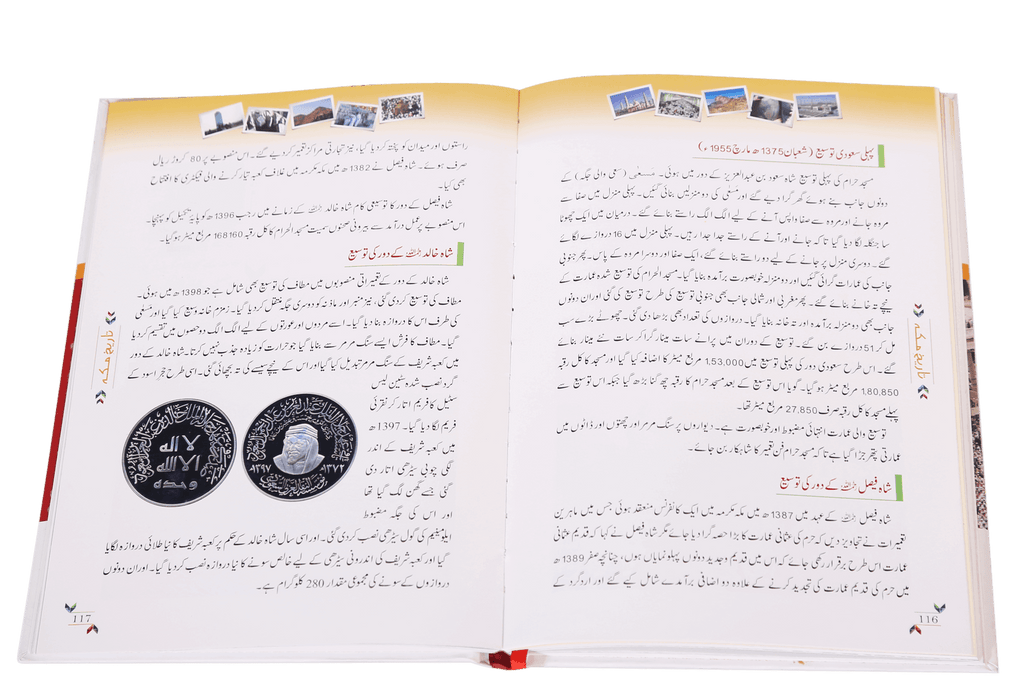 پہلی سعودی توسیع (شعبان 1375ھ مارچ 1955ء)
مسجد حرام کی پہلی توسیع شاہ سعود بن عبدالعزیز کے دور میں ہوئی۔ مسعیٰ (سعی والی جگہ) کے
دونوں جانب بنے ہوئے گھر گرا دیے گئے اور مسعٰی کی دو منزلیں بنائی گئیں۔ پہلی منزل میں صفا سے
مروہ جانے اور مروہ سے صفا واپس آنے کے لیے الگ الگ راستے بنائے گئے۔ درمیان میں ایک چھوٹا
سا جنگلہ لگا دیا گیا تاکہ جانے اور آنے کے راستے جدا جدا رہیں۔ پہلی منزل میں 16 دروازے لگائے
گئے۔ دوسری منزل پر جانے کے لیے دو راستے بنائے گئے، ایک صفا اور دوسرا مروہ کے پاس۔ پھر جنوبی
جانب کی عمارات گرائی گئیں اور دو منزلہ خوبصورت برآمدہ بنایا گیا۔ مسجد الحرام کی توسیع شدہ عمارت کے
نیچے تہ خانے بنائے گئے۔ پھر مغربی اور شمالی جانب بھی جنوبی توسیع کی طرح توسیع کی گئی اور ان دونوں
جانب بھی دو منزلہ برآمدہ اور تہ خانہ بنایا گیا۔ دروازوں کی تعداد بھی بڑھا دی گئی۔ چھوٹے بڑے سب
مل کر 51 دروازے بن گئے۔ توسیع کے دوران میں پرانے سات مینار گرا کر سات نئے مینار بنائے
گئے۔ اس طرح سعودی دور کی پہلی توسیع میں 1,53,000 مربع میٹر کا اضافہ کیا گیا اور مسجد کا کل رقبہ
1,80,850 مربع میٹر ہو گیا۔ گویا اس توسیع کے بعد مسجد حرام کا رقبہ چھ گنا بڑھ گیا جبکہ اس توسیع سے
پہلے مسجد کا کل رقبہ صرف 27,850 مربع میٹر تھا۔
توسیع والی عمارت انتہائی مضبوط اور خوبصورت ہے۔ دیواروں پر سنگ مرمر اور چھتوں اور ڈاٹوں میں
عمارتی پتھر جڑا گیا ہے تاکہ مسجد حرام فن تعمیر کا شاہکار بن جائے۔
شاہ فیصل رحمہ اللہ کے دور کی توسیع
شاہ فیصل رحمہ اللہ کے عہد میں 1387ھ میں مکہ مکرمہ میں ایک کانفرنس منعقد ہوئی جس میں ماہرین
تعمیرات نے تجاویز دیں کہ حرم کی عثمانی عمارت کا بڑا حصہ گرا دیا جائے مگر شاہ فیصل نے کہا کہ قدیم عثمانی
عمارت اس طرح برقرار رکھی جائے کہ اس میں قدیم و جدید دونوں پہلو نمایاں ہوں، چنانچہ صفر 1389ھ
میں حرم کی قدیم عمارت کی تجدید کرنے کے علاوہ دو اضافی برآمدے شامل کیے گئے اور ارد گرد کے
تاریخ مکہ
116
راستوں اور میدان کو پختہ کر دیا گیا، نیز تجارتی مراکز تعمیر کر دیے گئے۔ اس منصوبے پر 80 کروڑ ریال
صرف ہوئے۔ شاہ فیصل نے 1382ھ میں مکہ مکرمہ میں غلاف کعبہ تیار کرنے والی فیکٹری کا افتتاح
بھی کیا۔
شاہ فیصل کے دور کا توسیعی کام شاہ خالد رحمہ اللہ کے زمانے میں رجب 1396ھ کو پایۂ تکمیل کو پہنچا۔
اس منصوبے پر عمل درآمد سے بیرونی صحنوں سمیت مسجد الحرام کا کل رقبہ 168160 مربع میٹر ہو گیا۔
شاہ خالد رحمہ اللہ کے دور کی توسیع
شاہ خالد کے دور کے تعمیراتی منصوبوں میں مطاف کی توسیع بھی شامل ہے جو 1398ھ میں ہوئی۔
مطاف کی توسیع کر دی گئی، نیز منبر اور ماذنہ کو دوسری جگہ منتقل کر دیا گیا۔ زمزم خانہ وسیع کیا گیا اور مسعیٰ
کی طرف اس کا دروازہ بنا دیا گیا۔ اسے مردوں اور عورتوں کے لیے الگ الگ دو حصوں میں تقسیم کر دیا
گیا۔ مطاف کا فرش ایسے سنگ مرمر سے بنایا گیا جو حرارت کو زیادہ جذب نہیں کرتا۔ شاہ خالد کے دور
میں کعبہ شریف کے سنگ مرمر تبدیل کیا گیا اور اس کے نیچے سیسے کی تہ بچھائی گئی۔ اسی طرح حجر اسود کے
گرد نصب شدہ سٹین لیس
سٹیل کا فریم اتار کر نقرئی
فریم لگا دیا گیا۔ 1397ھ
میں کعبہ شریف کے اندر
لگی چوبی سیڑھی اتار دی
گئی جسے گھن لگ گیا تھا
اور اس کی جگہ مضبوط
ایلومینیم کی گول سیڑھی نصب کر دی گئی۔ اور اسی سال شاہ خالد کے حکم پر کعبہ شریف کا نیا طلائی دروازہ لگایا
گیا اور کعبہ شریف کی اندرونی سیڑھی کے لیے خالص سونے کا نیا دروازہ نصب کر دیا گیا۔ اور ان دونوں
دروازوں کے سونے کی مجموعی مقدار 280 کلو گرام ہے۔
لا اله
الا الله
وحده
١٣٩٧
١٣٧٢
تاریخ مکہ
117